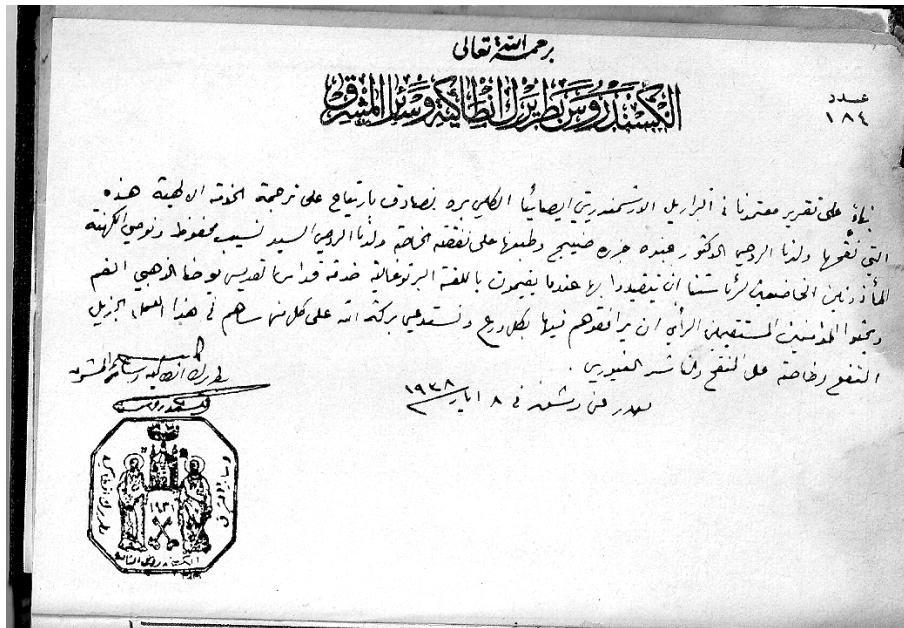 برحمة الله تعالى
الكسندروس بطريرك انطاكية وسائر المشرق
عدد
١٨٤
بناءً على تقرير معتمدنا في البرازيل الارشمندريتي ايصائيا الكلي بره نصادق بارتياح على ترجمة الخدمة الالهية هذه
التي نقحها ولدنا الروحي الدكتور عبده حرره وطبعها على نفقته الخاصة ولدنا الروحي السيد نسيب محفوظ ونوصي الكهنة
المأذونين الخاضعين لرئاستنا ان يتقيدوا بها عندما يقيمون باللغة البرتوغالية خدمة قداس القديس يوحنا الذهبي الفم
ويحثوا المؤمنين المستقيمي الرأي ان يرافقوهم فيها بكل ورع ونستدعي بركة الله على كل من ساهم في هذا العمل الجزيل
النفع وخاصة على المنقح والناشر الغيورين .
صدر عن دمشق في ٨ ايار ١٩٣٨
بطريرك انطاكية وسائر المشرق
الكسندروس
بطريرك انطاكية
وسائر المشرق
١٩٣١
الكسندروس الثالث